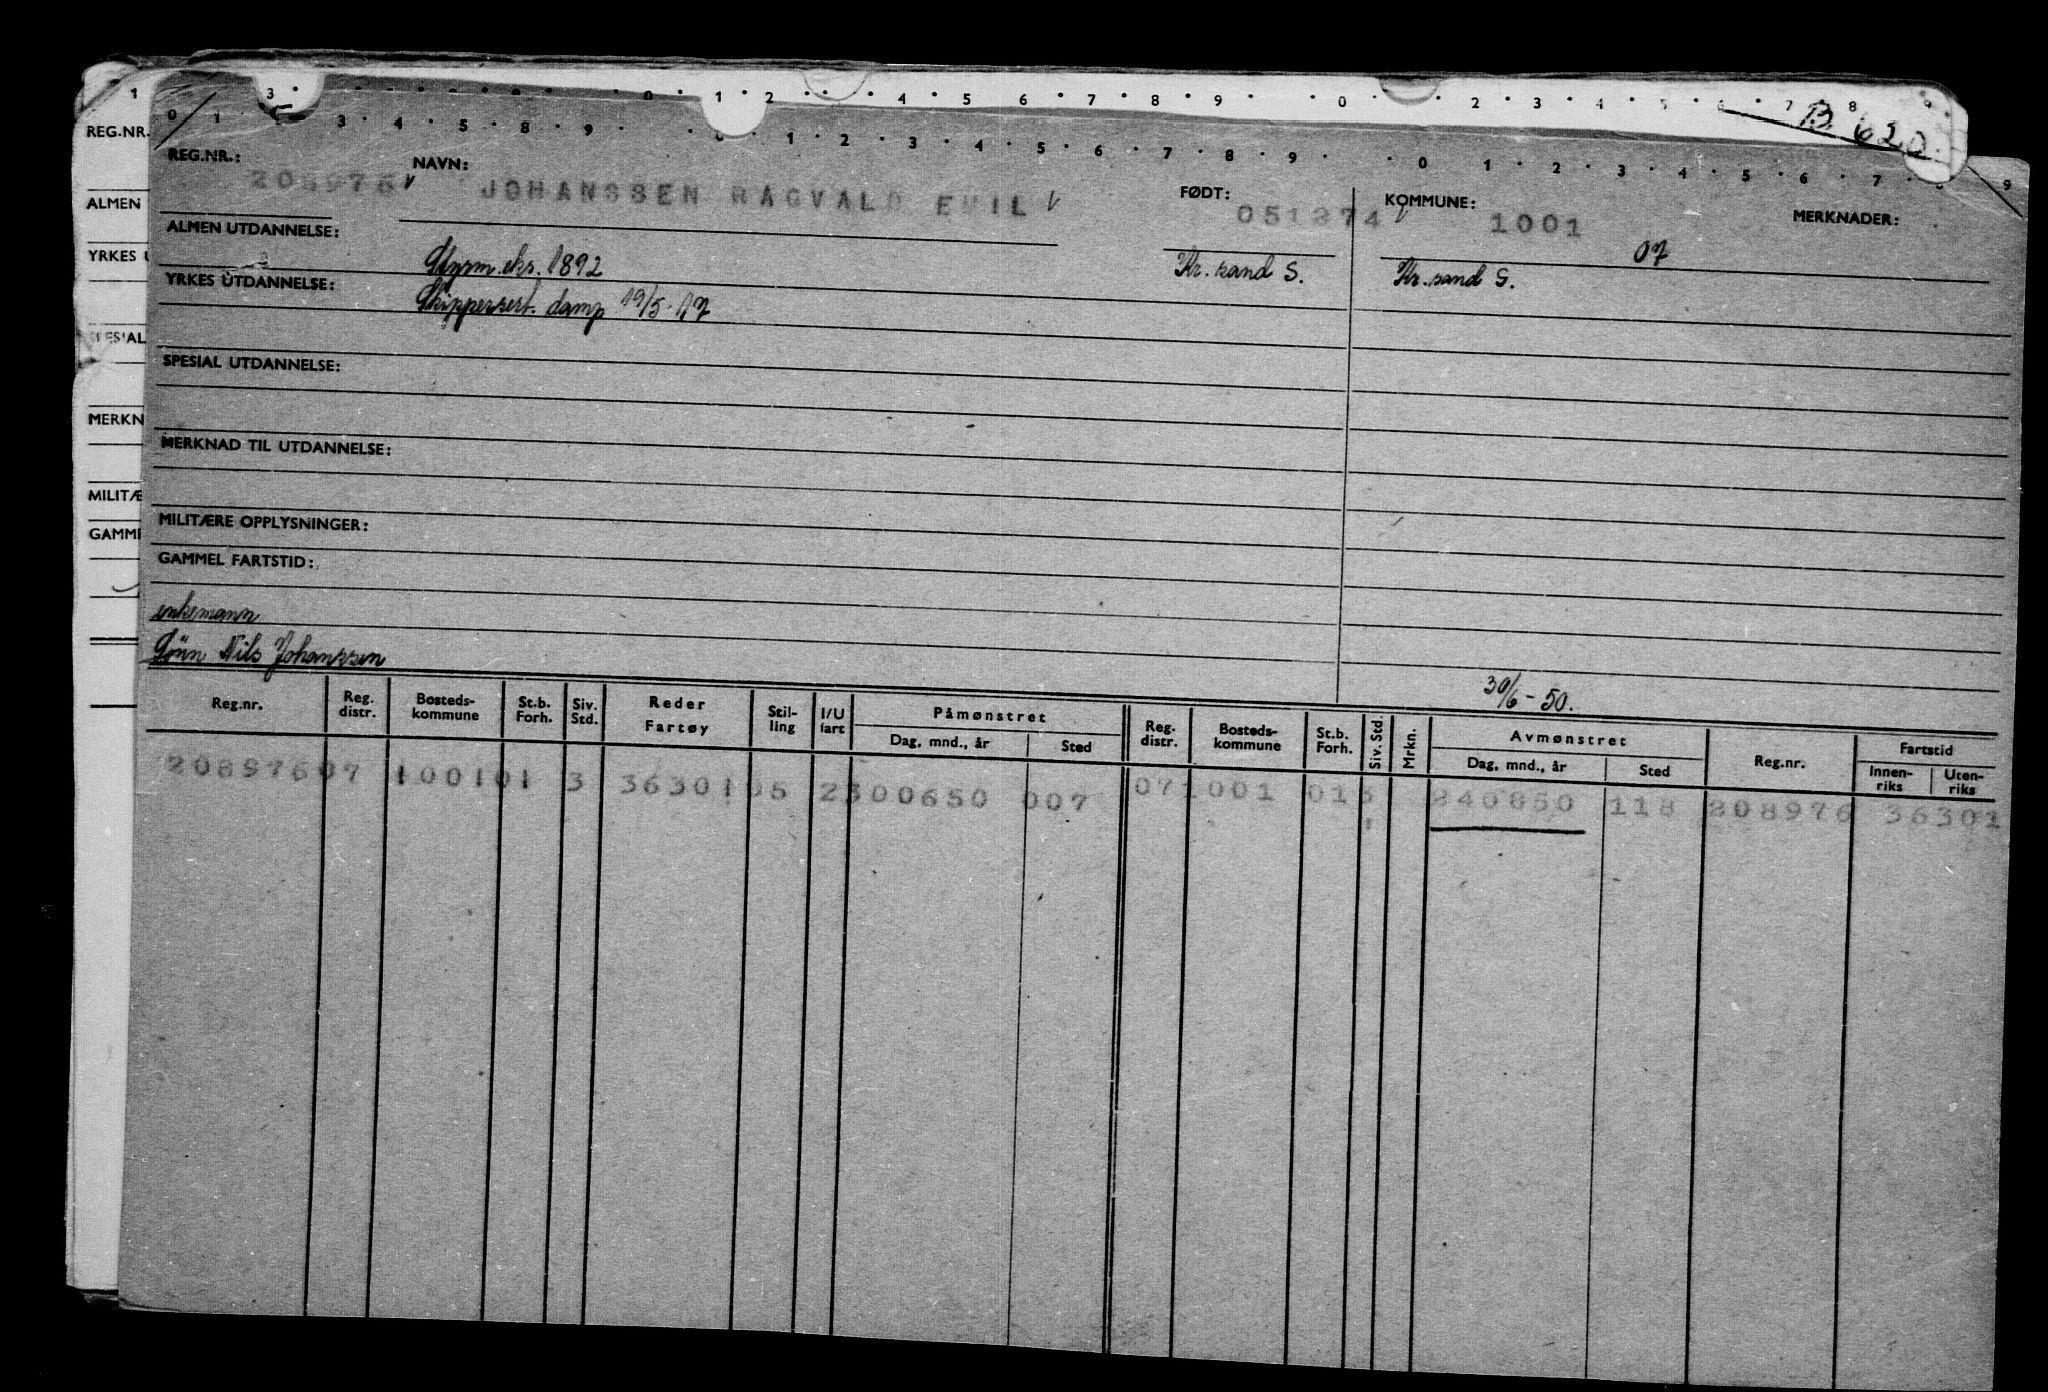 1 3 0 1 2 4 5 6 7 8 9 0 2 3 4 5 6 7 8 9
B. 620
0 1 3 4 5 8 9 1 2 3 4 5 6 7 8 9 0 1 2 3 4 5 6 7 8 9
REG.NR.
REG.NR.: 208976 NAVN: JOHANSSEN RAGVALD EMIL FØDT: 051274 KOMMUNE: 1001 MERKNADER:
ALMEN
ALMEN UTDANNELSE: Styrm.eks. 1892 Kr. sand S. Kr. sand S. 07
YRKES U
YRKES UTDANNELSE: Skippersert. damp 19/5-17
SPESIAL
SPESIAL UTDANNELSE:
MERKN
MERKNAD TIL UTDANNELSE:
MILITÆ
MILITÆRE OPPLYSNINGER:
GAMME
GAMMEL FARTSTID:
enkemann
Sönn Nils Johanssen
30/6-50.
Reg.nr. Reg. distr. Bosteds-kommune St.b. Forh. Siv. Std. Reder Fartøy Stil-ling I/U fart Påmønstret Dag, mnd., år Sted Reg. distr. Bosteds-kommune St.b. Forh. Siv. Std. Mrkn. Avmønstret Dag, mnd., år Sted Reg.nr. Fartstid Innen-riks Uten-riks
208976 07 1001 01 3 36301 05 2 300650 007 07 1001 01 3 240850 118 208976 36301